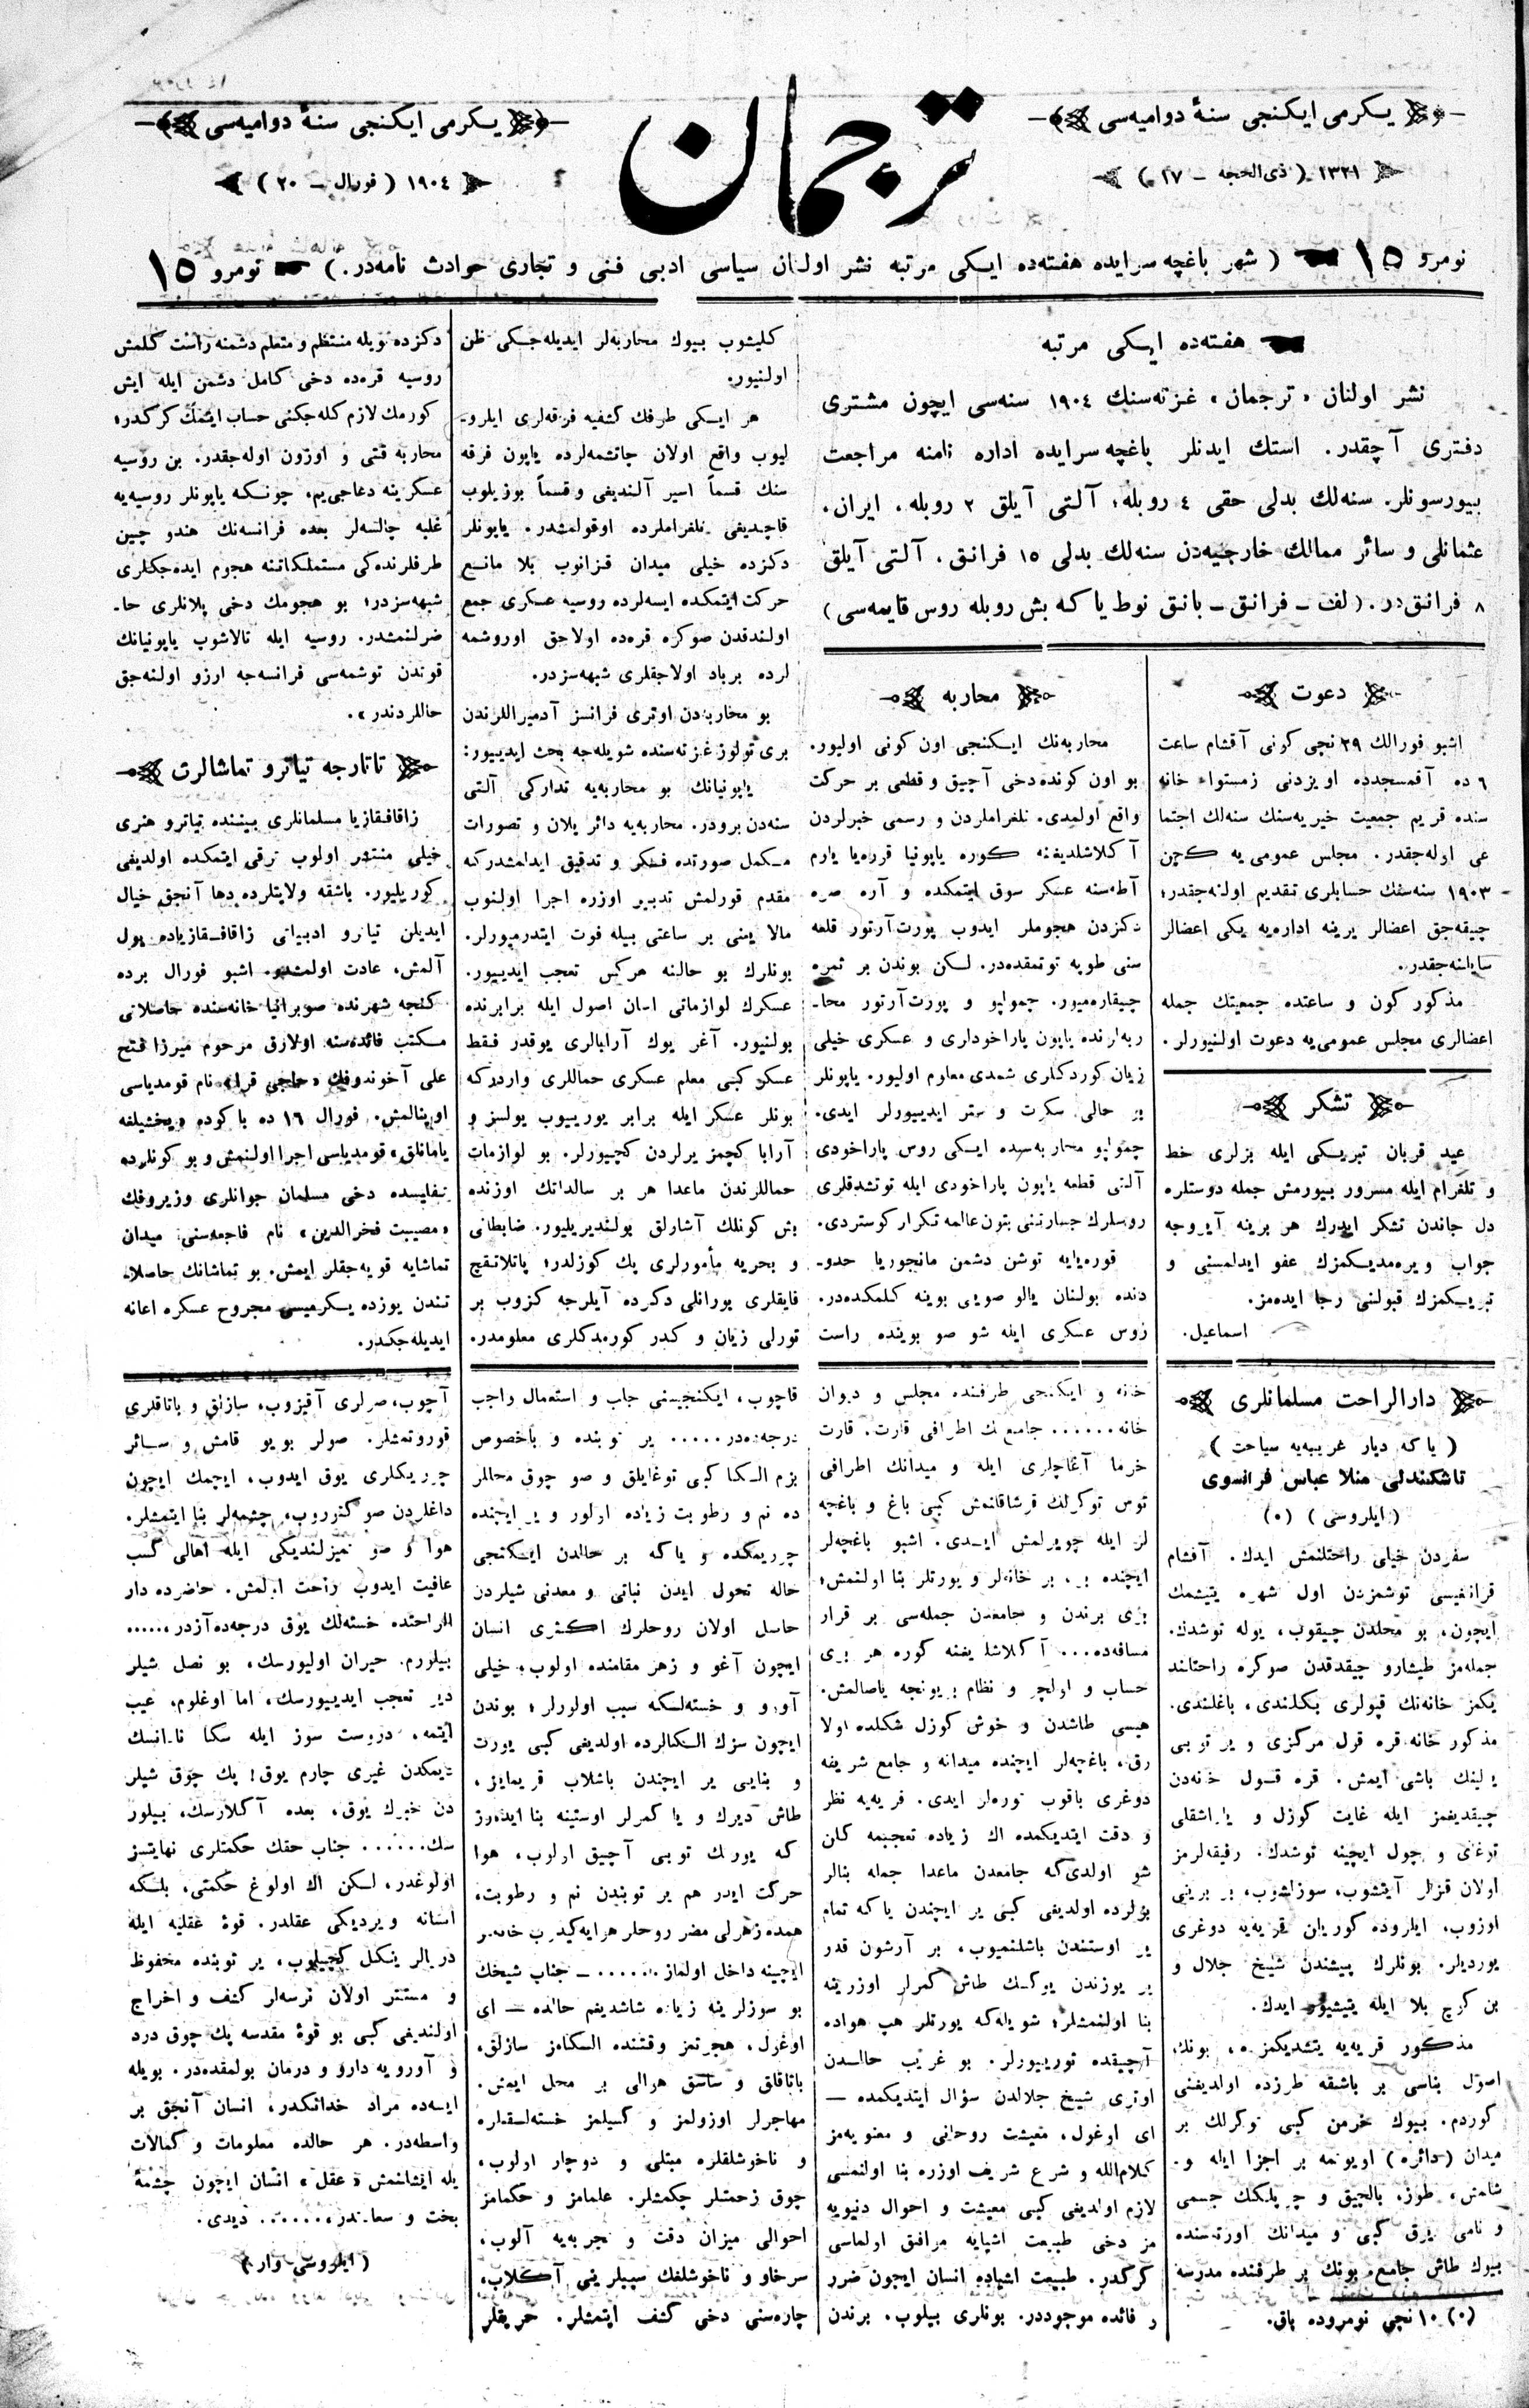 یكرمی ایكنجی سنهٔ دوامیه‌سی
۱۳۲۱ ( ذی‌الحجه – ۱۷ )
ترجمان
یكرمی ایكنجی سنهٔ دوامیه‌سی
۱۹۰٤ ( فورال – ۲۰ )
نومرو ۱٥ ( شهر باغچه‌سرایده هفته‌ده ایكی مرتبه نشر اولنان سیاسی ادبی فنی و تجاری حوادث نامه‌در. ) نومرو ۱٥
هفته‌ده ایكی مرتبه
نشر اولنان « ترجمان » غزته‌سنك ۱۹۰٤ سنه‌سی ایچون مشتری
دفتری آچقدر. استك ایدنلر باغچه‌سرایده اداره نامنه مراجعت
بیورسونلر. سنه‌لك بدلی حقی ٤ روبله؛ آلتی آیلق ۲ روبله. ایران،
عثمانلی و سائر ممالك خارجیه‌دن سنه‌لك بدلی ۱٥ فرانق، آلتی آیلق
۸ فرانق‌در. ( لف – فرانق – بانق نوط یا كه بش روبله روس قایمه‌سی )
دعوت
اشبو فورالك ۲۹ نچی كونی آقشام ساعت
٦ ده آقمسجدده اویزدنی زمستوا خانه
سنده قریم جمعیت خیریه‌سنك سنه‌لك اجتما
عی اوله‌جقدر. مجلس عمومی یه كچن
۱۹۰۳ سنه‌سنك حسابلری تقدیم اولنه‌جقدر؛
چیقه‌جق اعضالر یرینه اداره‌یه یكی اعضالر
سایلنه‌جقدر.
مذكور كون و ساعتده جمعیتك جمله
اعضالری مجلس عمومی‌یه دعوت اولنیورلر.
تشكر
عید قربان تبریكی ایله بزلری خط
و تلغرام ایله مسرور بیورمش جمله دوستلره
دل جاندن تشكر ایدرك هر برینه آیروجه
جواب ویره‌مدیكمزك عفو ایدلمسنی و
تبریكمزك قبولنی رجا ایده‌مز.
اسماعیل.
محاربه
محاربه‌نك ایكنجی اون كونی اولیور.
بو اون كونده دخی آچیق و قطعی بر حركت
واقع اولمدی. تلغراملردن و رسمی خبرلردن
آكلاشلدیغنه كوره یاپونیا قرره‌یا یارم
آطه‌سنه عسكر سوق ایتمكده و آره صره
دكزدن هجوملر ایدوب پورت‌آرتور قلعه
سنی طوپه توتمقده‌در. لكن بوندن بر ثمره
چیقاره‌میور. چمولپو و پورت‌آرتور محا-
ربه‌لرنده یاپون پاراخوداری و عسكری خیلی
زیان كوردكلری شمدی معلوم اولیور. یاپونلر
بو حالی سكوت و ستر ایدییورلر ایدی.
چمولپو محاربه‌سده ایكی روس پاراخودی
آلتی قطعه یاپون پاراخودی ایله توتشدقلری
روسلرك جسارتنی بتون عالمه تكرار كوستردی.
قوره‌یایه توشن دشمن مانجوریا حدو-
دنده بولنان یالو صویی بوینه كلمكده‌در.
روس عسكری ایله شو صو بوینده راست
كلیشوب بیوك محاربه‌لر ایدیله‌جكی ظن
اولنیور.
هر ایكی طرفك كشفیه فرقه‌لری ایلرو-
لیوب واقع اولان چاتشمه‌لرده یاپون فرقه
سنك قسماً اسیر آلندیغی و قسماً بوزیلوب
قاچدیغی تلغراملرده اوقولمشدر. یاپونلر
دكزده خیلی میدان قزانوب بلا مانع
حركت ایتمكده ایسه‌لرده روسیه عسكری جمع
اولندقدن صوكره قره‌ده اولاجق اوروشمه
لرده برباد اولاجقلری شبهه‌سزدر.
بو محاربه‌دن اوتری فرانسز آدمیراللرندن
بری تولوز غزته‌سنده شویله‌جه بحث ایدییور:
یاپونیانك بو محاربه‌یه تداركی آلتی
سنه‌دن برودر. محاربه‌یه دائر پلان و تصورات
مكمل صورتده فكر و تدقیق ایدلمشدركه
مقدم قورلمش تدبیر اوزره اجرا اولنوب
مالا یعنی بر ساعتی بیله فوت ایتدرمیورلر.
بونلرك بو حالنه هركس تعجب ایدییور.
عسكرك لوازماتی آسان اصول ایله برابرنده
بولنیور. آغر یوك آرابالری یوقدر فقط
عسكر كبی معلم عسكری حماللری واردركه
بونلر عسكر ایله برابر یورییوب یولسز و
آرابا كچمز یرلردن كچیورلر. بو لوازمات
حماللرندن ماعدا هر بر سالداتك اوزنده
بش كونلك آشارلق بولندیریلیور. ضابطانی
و بحریه مأمورلری پك كوزلدر؛ پاتلانقچ
قایقلری بورانلی دكزده آیلرجه كزوب بر
تورلی زیان و كدر كورمدكلری معلومدر.
دكزده بویله منتظم و متعلم دشمنه راست كلمش
روسیه قره‌ده دخی كامل دشمن ایله ایش
كورمك لازم كله‌جكنی حساب ایتمك كركدر؛
محاربه قتی و اوزون اوله‌جقدر. بن روسیه
عسكرینه دعاجی‌یم، چونكه یاپونلر روسیه‌یه
غلبه چالسه‌لر بعده فرانسه‌نك هندو چین
طرفلرنده‌كی مستملكاتنه هجوم ایده‌جكلری
شبهه‌سزدر؛ بو هجومك دخی پلانلری حا-
ضرلنمشدر. روسیه ایله تالاشوب یاپونیانك
قوتدن توشمه‌سی فرانسه‌جه ارزو اولنه‌جق
حاللردندر ».
تاتارجه تیاترو تماشالری
زاقافقازیا مسلمانلری بیننده تیاترو هنری
خیلی منتشر اولوب ترقی ایتمكده اولدیغی
كوریلیور. باشقه ولایتلرده دها آنجق خیال
ایدیلن تیاترو ادبیاتی زاقافقازیاده یول
آلمش، عادت اولمشدر. اشبو فورال برده
كنجه شهرنده صوبرانیا خانه‌سنده حاصلاتی
مكتب فائده‌سنه اولارق مرحوم میرزا فتح
علی آخوندوفك « حاجی قرا » نام قومدیاسی
اوینالمش. فورال ۱٦ ده باكوده « یخشیلغه
یامانلق » قومدیاسی اجرا اولنمش و بو كونلرده
تفلیسده دخی مسلمان جوانلری وزیروفك
« مصیبت فخرالدین » نام فاجعه‌سنی میدان
تماشایه قویه‌جقلر ایمش. بو تماشانك حاصلا-
تندن یوزده یكرمیسی مجروح عسكره اعانه
ایدیله‌جكدر.
دارالراحت مسلمانلری
( یا كه دیار غریبه‌یه سیاحت )
تاشكندلی منلا عباس فرانسوی
( ایلروسی ) (٥)
سفردن خیلی راحتلنمش ایدك. آقشام
قرانغیسی توشمزدن اول شهره یتیشمك
ایچون، بو محلدن چیقوب، یوله توشدك.
جمله‌مز طیشارو چیقدقدن صوكره راحتلند
یكمز خانه‌نك قپولری بكلندی، باغلندی.
مذكور خانه قره قول مركزی و یر توبی
یلینك باشی ایمش. قره قول خانه‌دن
چیقدیغمز ایله غایت كوزل و یاراشقلی
توغای و چول ایچینه توشدك. رفیقه‌لرمز
اولان قزلر آیتشوب، سوزلشوب، بر برینی
اوزوب، ایلروده كورینن قریه‌یه دوغری
یوردیلر. بونلرك پیشندن شیخ جلال و
بن كوچ بلا ایله یتیشیور ایدك.
مذكور قریه‌یه یتشدیكمزده، بونك
اصول بناسی بر باشقه طرزده اولدیغنی
كوردم. بیوك خرمن كبی توكرلك بر
میدان (دائره) اویونمه بر اجزا ایله و-
شامش، طوز، بالچیق و چریلكك جسمی
و نامی یوق كبی و میدانك اورته‌سنده
بیوك طاش جامع، بونك بر طرفنده مدرسه
(٥) ۱۰ نجی نومروده باق.
خانه و ایكنجی طرفنده مجلس و دیوان
خانه...... جامع‌نك اطرافی قارت، قارت
خرما آغاچلری ایله و میدانك اطرافی
توس توكرلك قوشاقلنمش كبی باغ و باغچه
لر ایله چویرلمش ایدی. اشبو باغچه‌لر
ایچنده بر، بر خانه‌لر و یورتلر بنا اولنمش؛
بری برندن و جامعدن جمله‌سی بر قرار
مسافه‌ده... آكلاشلدیغنه كوره هر بری
حساب و اولچو و نظام بریونجه یاصالمش.
هپسی طاشدن و خوش كوزل شكلده اولا
رق، باغچه‌لر ایچنده میدانه و جامع شریفه
دوغری باقوب توره‌لر ایدی. قریه‌یه نظر
و دقت ایتدیكمده اك زیاده تعجبمه كلن
شو اولدی‌كه جامعدن ماعدا جمله بنالر
بزلرده اولدیغی كبی یر ایچندن یا كه تمام
یر اوستندن باشلنمیوب، بر آرشون قدر
یر یوزندن یوكسك طاش كمرلر اوزرینه
بنا اولنمشلر؛ شویله‌كه یورتلر هپ هواده
آچیقده تورییورلر. بو غریب حالدن
اوتری شیخ جلالدن سؤال ایتدیكمده —
ای اوغول، معیشت روحانی و معنویه‌مز
كلام‌الله و شرع شریف اوزره بنا اولنمسی
لازم اولدیغی كبی معیشت و احوال دنیویه
مز دخی طبیعت اشیایه موافق اولماسی
كركدر. طبیعت اشیاده انسان ایچون ضرر
و فائده موجوددر. بونلری بیلوب، برندن
قاچوب، ایكنجیسنی جلب و استعمال واجب
درجه‌ده‌در..... یر توبنده و باخصوص
بزم الكا كبی توغایلق و صو چوق محللر
ده نم و رطوبت زیاده اولور و یر ایچنده
چریمكده و یا كه بر حالدن ایكنجی
حاله تحول ایدن نباتی و معدنی شیلردن
حاصل اولان روحلرك اكثری انسان
ایچون آغو و زهر مقامنده اولوب، خیلی
آورو و خسته‌لكه سبب اولورلر؛ بوندن
ایچون سزك الكالرده اولدیغی كبی یورت
و بنایی یر ایچندن باشلاب قریمایز،
طاش دیرك و یا كمرلر اوستینه بنا ایده‌رز
كه یورتك توبی آچیق اولوب، هوا
حركت ایدر هم یر توبندن نم و رطوبت،
همده زهرلی مضر روحلر هوایه كیدوب خانه‌لر
ایچینه داخل اولماز...... – جناب شیخك
بو سوزلرینه زیاده شاشدیغم حالده — ای
اوغول، هجرتمز وقتنده الكامز سازلق،
باتاقلق و ساسق هوالی بر محل ایمش.
مهاجرلر اوزولمز و كسیلمز خسته‌لقلره
و ناخوشلقلره مبتلی و دوچار اولوب،
چوق زحمتلر چكمشلر. علمامز و حكمامز
احوالی میزان دقت و تجربه‌یه آلوب،
سرخاو و ناخوشلغك سببلرینی آكلاب،
چاره‌سنی دخی كشف ایتمشلر. حریقلر
آچوب، صولری آقیزوب، سازلق و باتاقلری
قوروتمشلر. صولر بویو قامش و سائر
چوریكلری یوق ایدوب، ایچمك ایچون
داغلردن صو كتوروب، چشمه‌لر بنا ایتمشلر.
هوا و صو تمیزلندیكی ایله اهالی كسب
عافیت ایدوب راحت اولمش. حاضرده دار
الراحتده خسته‌لك یوق درجه‌ده آزدر،.....
بیلورم. حیران اولیورسك، بو نصل شیلر
دیر تعجب ایدییورسك، اما اوغلوم، عیب
ایتمه، دروست سوز ایله سكا نادانسك
دیمكدن غیری چارم یوق؛ پك چوق شیلر
دن خبرك یوق، بعده آكلارسك، بیلور
سك...... جناب حقك حكمتلری نهایتسز
اولوغدر، لكن اك اولوغ حكمتی، بلكه
انسانه ویردیكی عقلدر. قوهٔ عقلیه ایله
دریالر ینكل كچیلوب، یر توبنده محفوظ
و مستتر اولان نرسه‌لر كشف و اخراج
اولندیغی كبی بو قوهٔ مقدسه پك چوق درد
و آورویه دارو و درمان بولمقده‌در. بویله
ایسه‌ده مراد خدانكدر، انسان آنجق بر
واسطه‌در. هر حالده معلومات و كمالات
یله ایشلنمش « عقل » انسان ایچون چشمهٔ
بخت و سعادتدر،...... دیدی.
( ایلروسی وار )